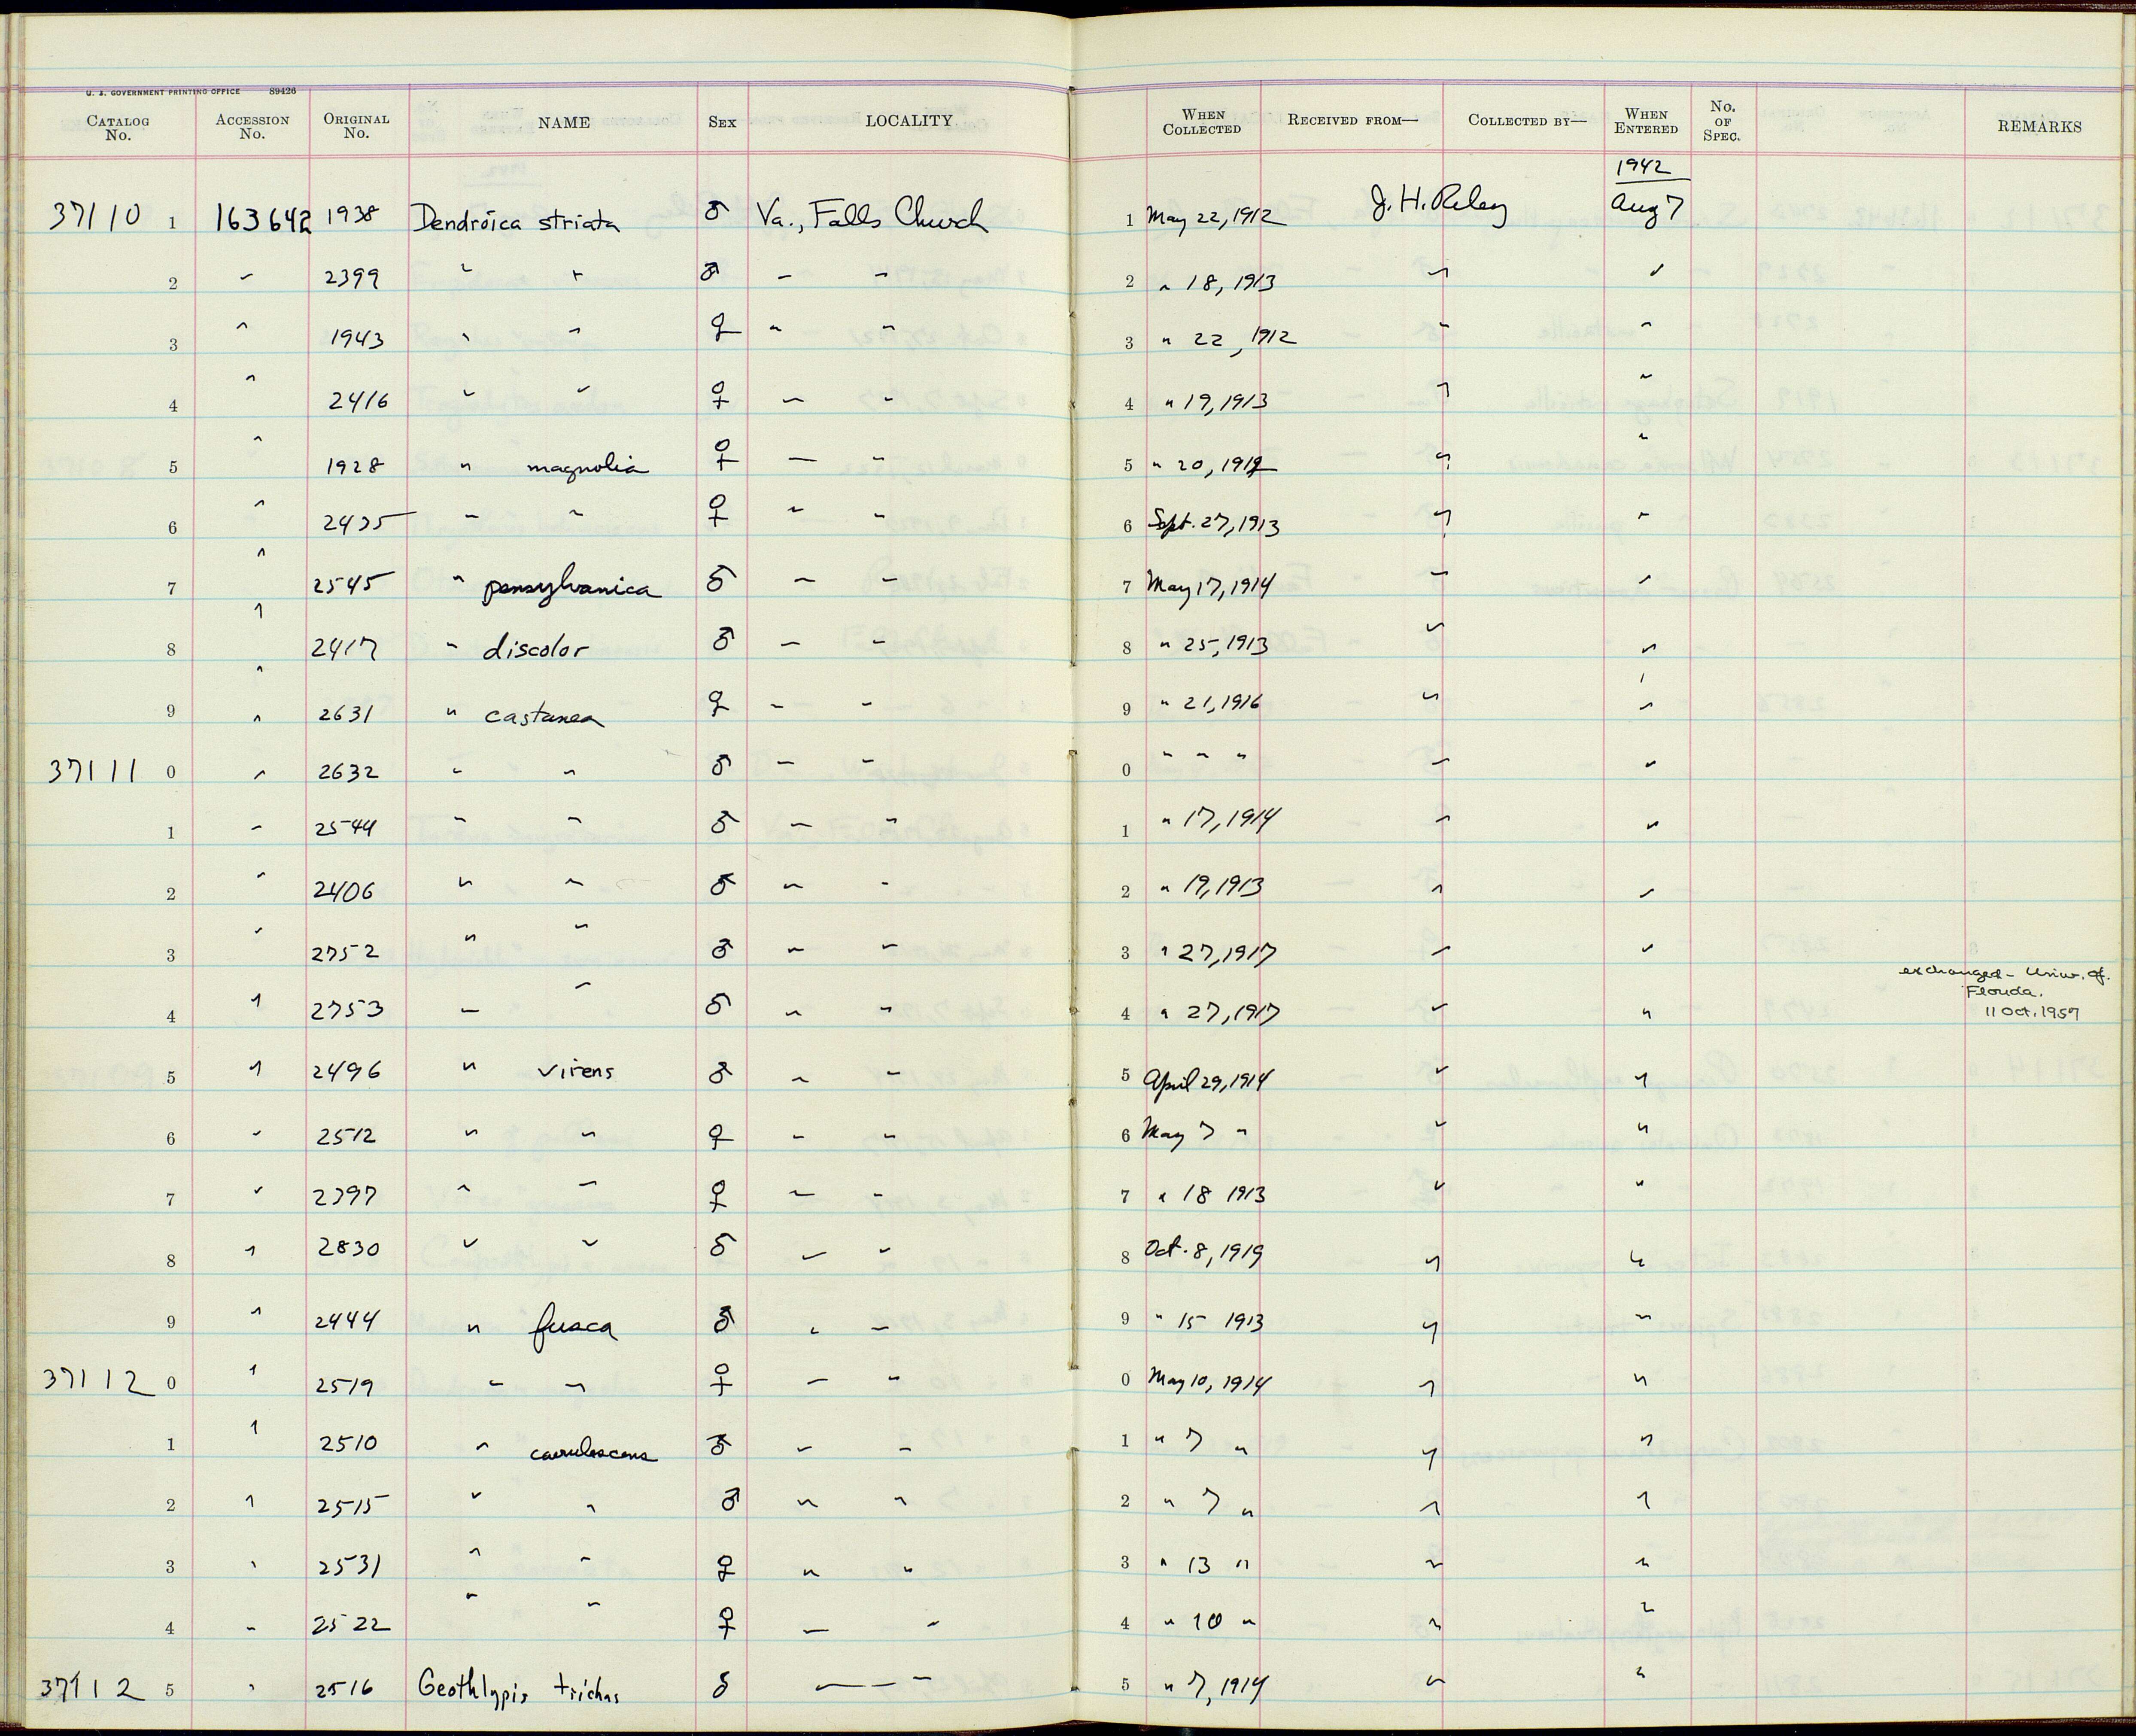 U. S. GOVERNMENT PRINTING OFFICE 89426
CATALOG No. ACCESSION No. ORIGINAL No. NAME SEX LOCALITY WHEN COLLECTED RECEIVED FROM— COLLECTED BY— WHEN ENTERED No. OF SPEC. REMARKS
1942
37110 1 163642 1938 Dendroica striata ♂ Va., Falls Church 1 May 22, 1912 J. H. Riley Aug 7
2 " 2399 " " ♂ " " 2 " 18, 1913 " "
3 " 1943 " " ♀ " " 3 " 22, 1912 " "
4 " 2416 " " ♀ " " 4 " 19, 1913 " "
5 " 1928 " magnolia ♀ " " 5 " 20, 1912 " "
6 " 2435 " " ♀ " " 6 Sept. 27, 1913 " "
7 " 2545 " pensylvanica ♂ " " 7 May 17, 1914 " "
8 " 2417 " discolor ♂ " " 8 " 25, 1913 " "
9 " 2631 " castanea ♀ " " 9 " 21, 1916 " "
37111 0 " 2632 " " ♂ " " 0 " " " " "
1 " 2544 " " ♂ " " 1 " 17, 1914 " "
2 " 2406 " " ♂ " " 2 " 19, 1913 " "
3 " 2752 " " ♂ " " 3 " 27, 1917 " "
4 " 2753 " " ♂ " " 4 " 27, 1917 " " exchanged - Univ. of.
Florida.
11 Oct. 1957
5 " 2496 " virens ♂ " " 5 April 29, 1914 " "
6 " 2512 " " ♀ " " 6 May 7 " " "
7 " 2397 " " ♀ " " 7 " 18 1913 " "
8 " 2830 " " ♂ " " 8 Oct. 8, 1919 " "
9 " 2444 " fusca ♂ " " 9 " 15 1913 " "
37112 0 " 2519 " " ♀ " " 0 May 10, 1914 " "
1 " 2510 " caerulescens ♂ " " 1 " 7 " " "
2 " 2515 " " ♂ " " 2 " 7 " " "
3 " 2531 " " ♀ " " 3 " 13 " " "
4 " 2522 " " ♀ " " 4 " 10 " " "
37112 5 " 2516 Geothlypis trichas ♂ " " 5 " 7, 1914 " "